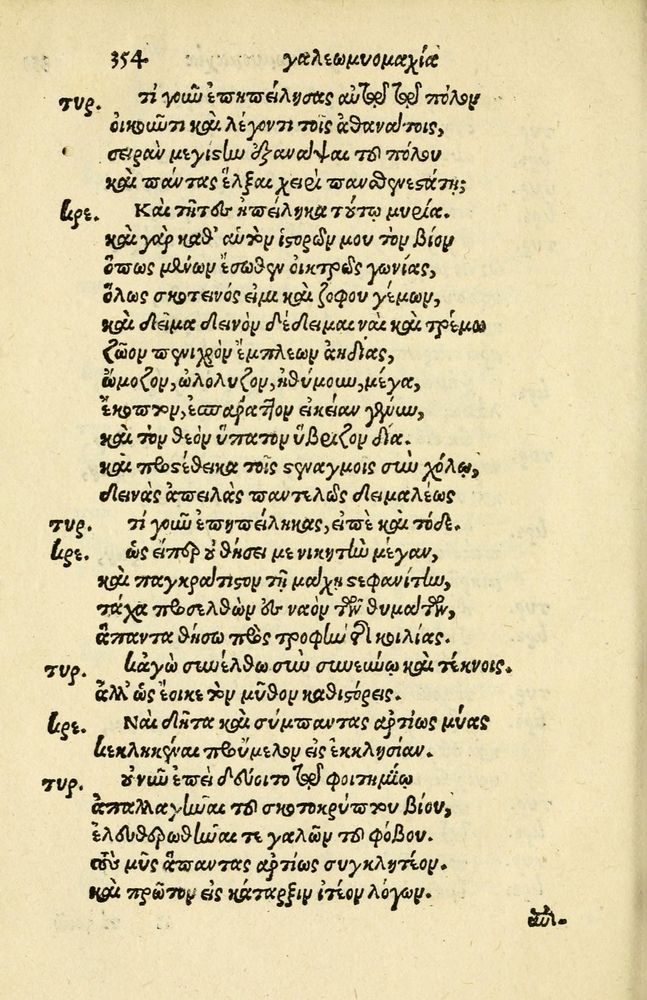 354 γαλεωμυομαχία
τυρ. τί γοῦν ἐπηπείλησας αὐτῷ τῷ πόλον
οἰκοῦντι καὶ λέγοντι τοῖς ἀθανάτοις,
σειρὰν μεγίστην ἐξανάψαι τοῦ πόλου
καὶ πάντας ἕλξαι χειρὶ παναθενεστάτῃ;
κρε. Καὶ τῆτες ἠπείληκα τούτῳ μυρία.
καὶ γὰρ καθ' αὑτὸν ἱστορῶν μου τὸν βίον
ὅπως μένων ἔσωθεν οἰκτρᾶς γωνίας,
ὅλως σκοτεινός εἰμι καὶ ζόφου γέμων,
καὶ δεῖμα δεινὸν δέδειμαι ναὶ καὶ τρέμω
ζῶον πενιχρὸν ἔμπλεων ἀηδίας,
ᾤμοζον, ὠλόλυζον, ἠθύμουν, μέγα,
ἔκοπτον, ἐσπάραττον εἰκείαν γένυν,
καὶ τὸν θεὸν ὕπατον ὕβριζον δία.
καὶ προστέθεικα τοῖς στεναγμοῖς σὺν χόλῳ,
δεινὰς ἀπειλὰς παντελῶς δειμαλέως
τυρ. τί γοῦν ἐπηπείληκας, εἰπὲ καὶ τόδε.
κρε. ὡς εἴπερ οὐ θήσει με νικητὴν μέγαν,
καὶ παγκράτιστον τῇ μάχῃ στεφανίτην,
τάχα προσελθὼν ἐς ναὸν τῶν θυμάτων,
ἅπαντα θήσω πρὸς τροφὴν τῆς κοιλίας.
τυρ. κἀγὼ συνέλθω σὺν συνεύνῳ καὶ τέκνοις.
ἀλλ' ὡς ἔοικε τὸν μῦθον καθιστόρεις.
κρε. Ναὶ δῆτα καὶ σύμπαντας ἀρτίως μύας
κεκληκέναι προὔμελον εἰς ἐκκλησίαν.
τυρ. οὐνοῦν ἐπεὶ δεύοιτο τῷ φοιτημίῳ
ἀπαλλαγῆναι τοῦ σκοτοκρύπτου βίου,
ἐλευθερωθῆναι τε γαλῶν τοῦ φόβου.
τοὺς μῦς ἅπαντας ἀρτίως συγκλητέον.
καὶ πρῶτον εἰς κάταρξιν ἰτέον λόγων.